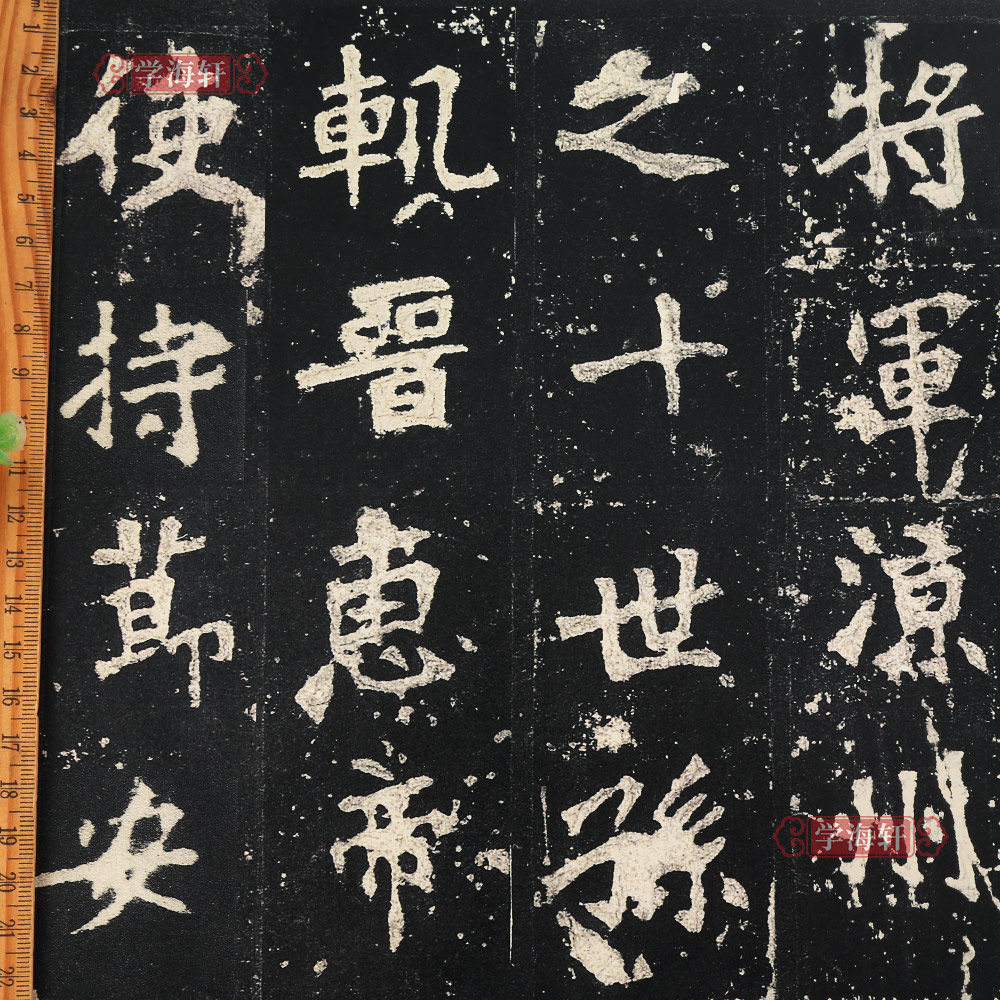 將軍涼州
之十世孫
軌晉惠帝
使持節安
学海轩
学海轩
1 2 3 4 5 6 7 8 9 11 12 13 14 15 16 17 18 19 20 21 22